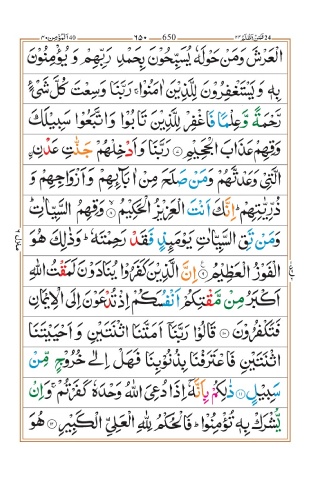 المؤمن ٤٠ ٦٥٠ 650 فمن اظلم ٢٤
الْعَرْشَ وَمَنْ حَوْلَهٗ يُسَبِّحُوْنَ بِحَمْدِ رَبِّهِمْ وَ يُؤْمِنُوْنَ
بِهٖ وَ يَسْتَغْفِرُوْنَ لِلَّذِيْنَ اٰمَنُوْا ۚ رَبَّنَا وَسِعْتَ كُلَّ شَيْءٍ
رَّحْمَةً وَّ عِلْمًا فَاغْفِرْ لِلَّذِيْنَ تَابُوْا وَ اتَّبَعُوْا سَبِيْلَكَ
وَقِهِمْ عَذَابَ الْجَحِيْمِ ۝۷ رَبَّنَا وَ اَدْخِلْهُمْ جَنّٰتِ عَدْنِ ࣙ
الَّتِيْ وَعَدْتَّهُمْ وَمَنْ صَلَحَ مِنْ اٰبَآئِهِمْ وَ اَزْوَاجِهِمْ وَ
ذُرِّيّٰتِهِمْ ؕ اِنَّكَ اَنْتَ الْعَزِيْزُ الْحَكِيْمُ ۝۸ وَقِهِمُ السَّيِّاٰتِ ؕ
وَمَنْ تَقِ السَّيِّاٰتِ يَوْمَئِذٍ فَقَدْ رَحِمْتَهٗ ؕ وَذٰلِكَ هُوَ
الْفَوْزُ الْعَظِيْمُ ۝۹ اِنَّ الَّذِيْنَ كَفَرُوْا يُنَادَوْنَ لَمَقْتُ اللّٰهِ
اَكْبَرُ مِنْ مَّقْتِكُمْ اَنْفُسَكُمْ اِذْ تُدْعَوْنَ اِلَى الْاِيْمَانِ
فَتَكْفُرُوْنَ ۝۱۰ قَالُوْا رَبَّنَآ اَمَتَّنَا اثْنَتَيْنِ وَ اَحْيَيْتَنَا
اثْنَتَيْنِ فَاعْتَرَفْنَا بِذُنُوْبِنَا فَهَلْ اِلٰى خُرُوْجٍ مِّنْ
سَبِيْلٍ ۝۱۱ ذٰلِكُمْ بِاَنَّهٗٓ اِذَا دُعِيَ اللّٰهُ وَحْدَهٗ كَفَرْتُمْ ۚ وَ اِنْ
يُّشْرَكْ بِهٖ تُؤْمِنُوْا ؕ فَالْحُكْمُ لِلّٰهِ الْعَلِيِّ الْكَبِيْرِ ۝۱۲ هُوَ